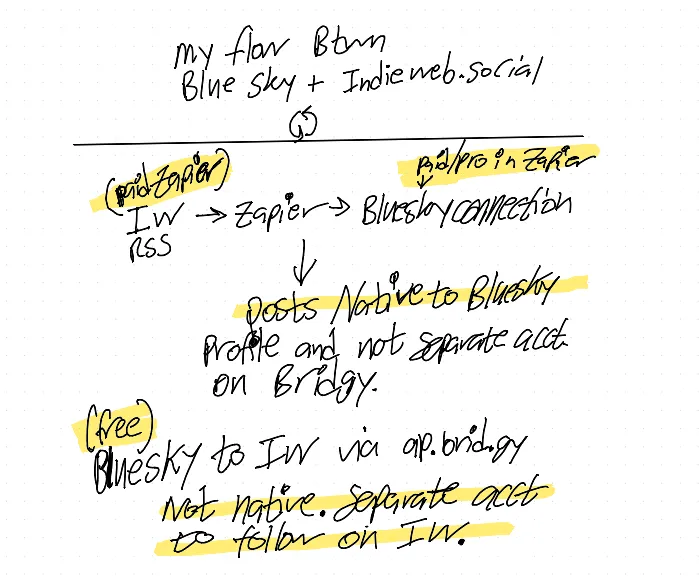 my flow Btwn
Blue sky + Indieweb.social
(paid Zapier)
paid/pro in Zapier
IW → Zapier → Bluesky connection
RSS
posts Native to Bluesky
Profile and not separate acct.
on Bridgy.
(free)
Bluesky to IW via ap.brid.gy
Not native. Separate acct
to follow on IW.